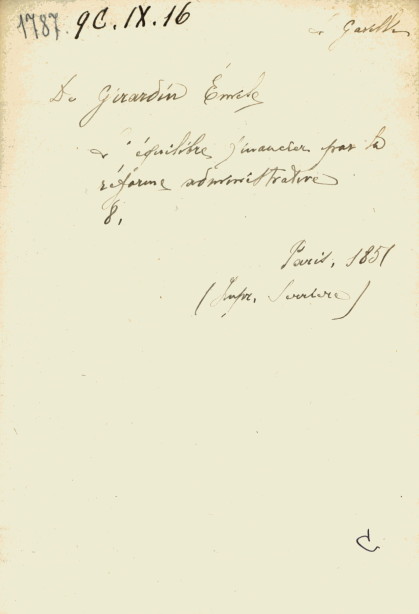 1787. 9C. IX. 16
De Girardin Émile
L'équilibre financier par la
réforme administrative
8.
Paris, 1851
(Impr. Serrière)
C